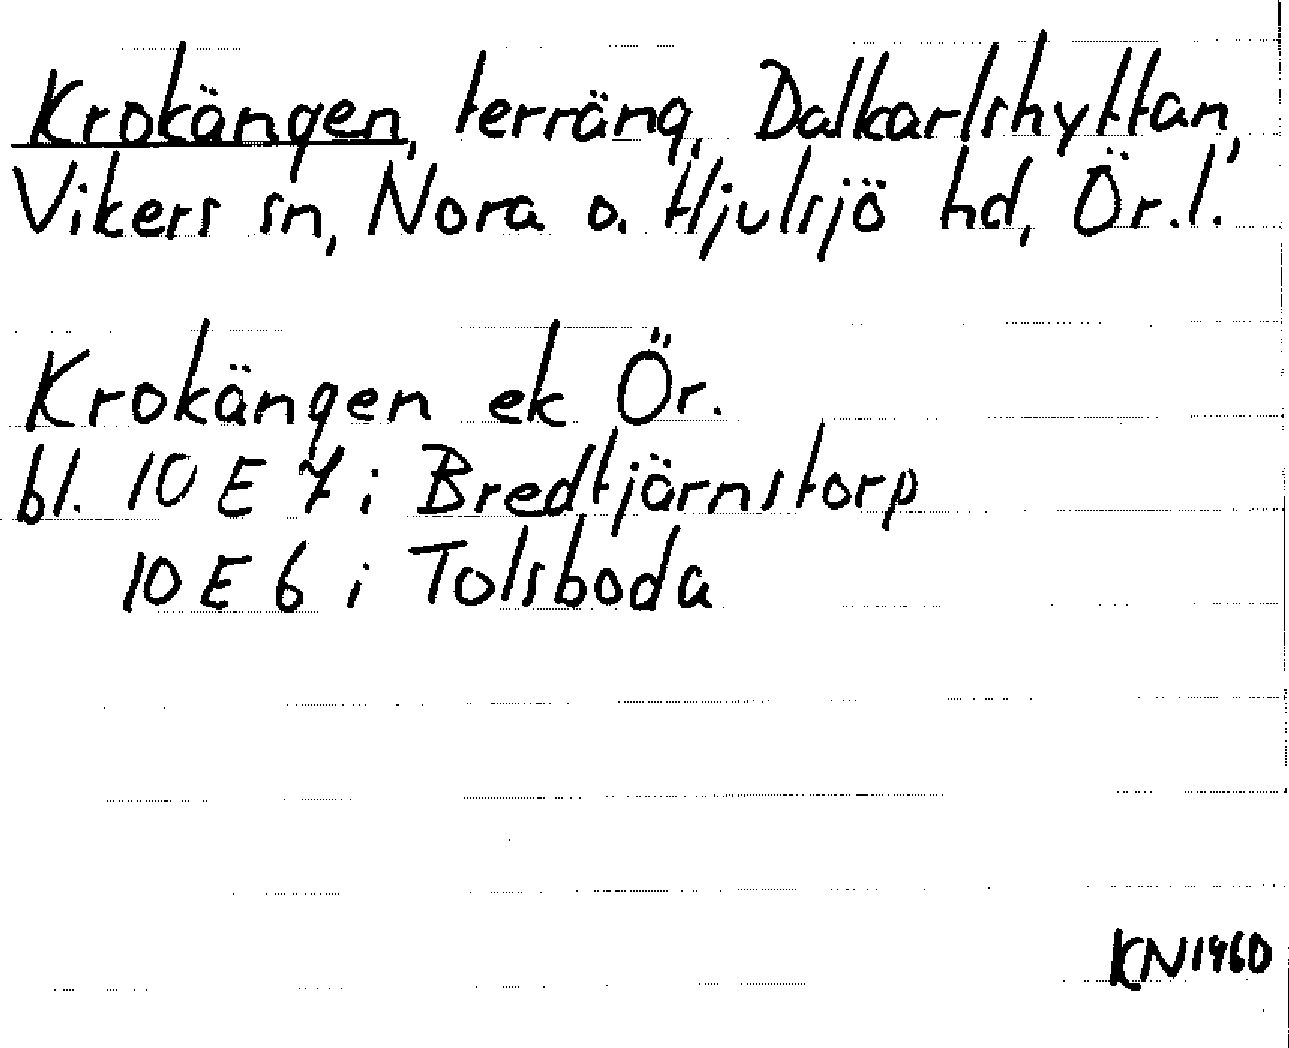 Krokängen, terräng, Dalkarlshyttan,
Vikers sn, Nora o. Hjulsjö hd, Ör.l.
Krokängen ek Ör.
bl. 10 E 7 i Bredtjärnstorp
10 E 6 i Tolsboda
KN1960